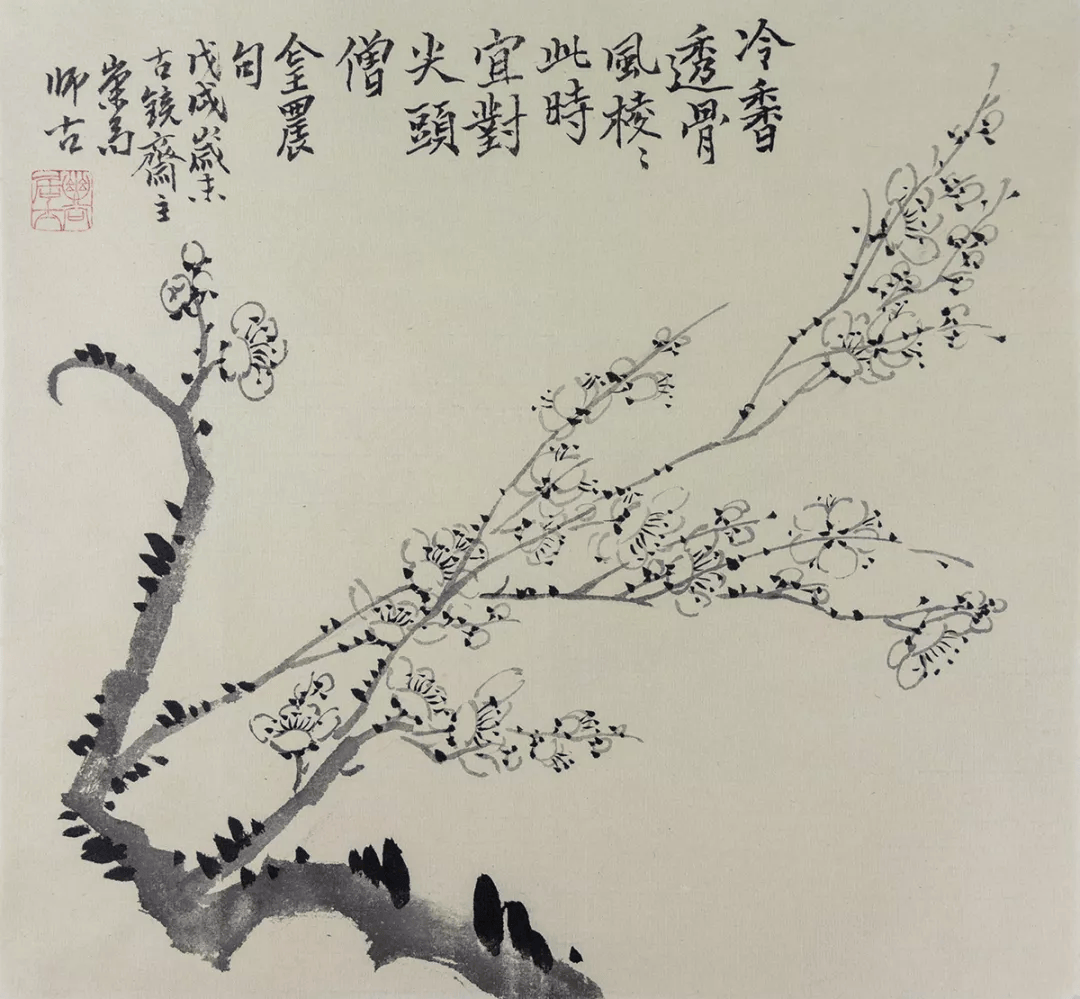 冷香
透骨
風棱々
此時
宜對
尖頭
僧
金農
句
戊戌歲末
古鏡齋主
師古